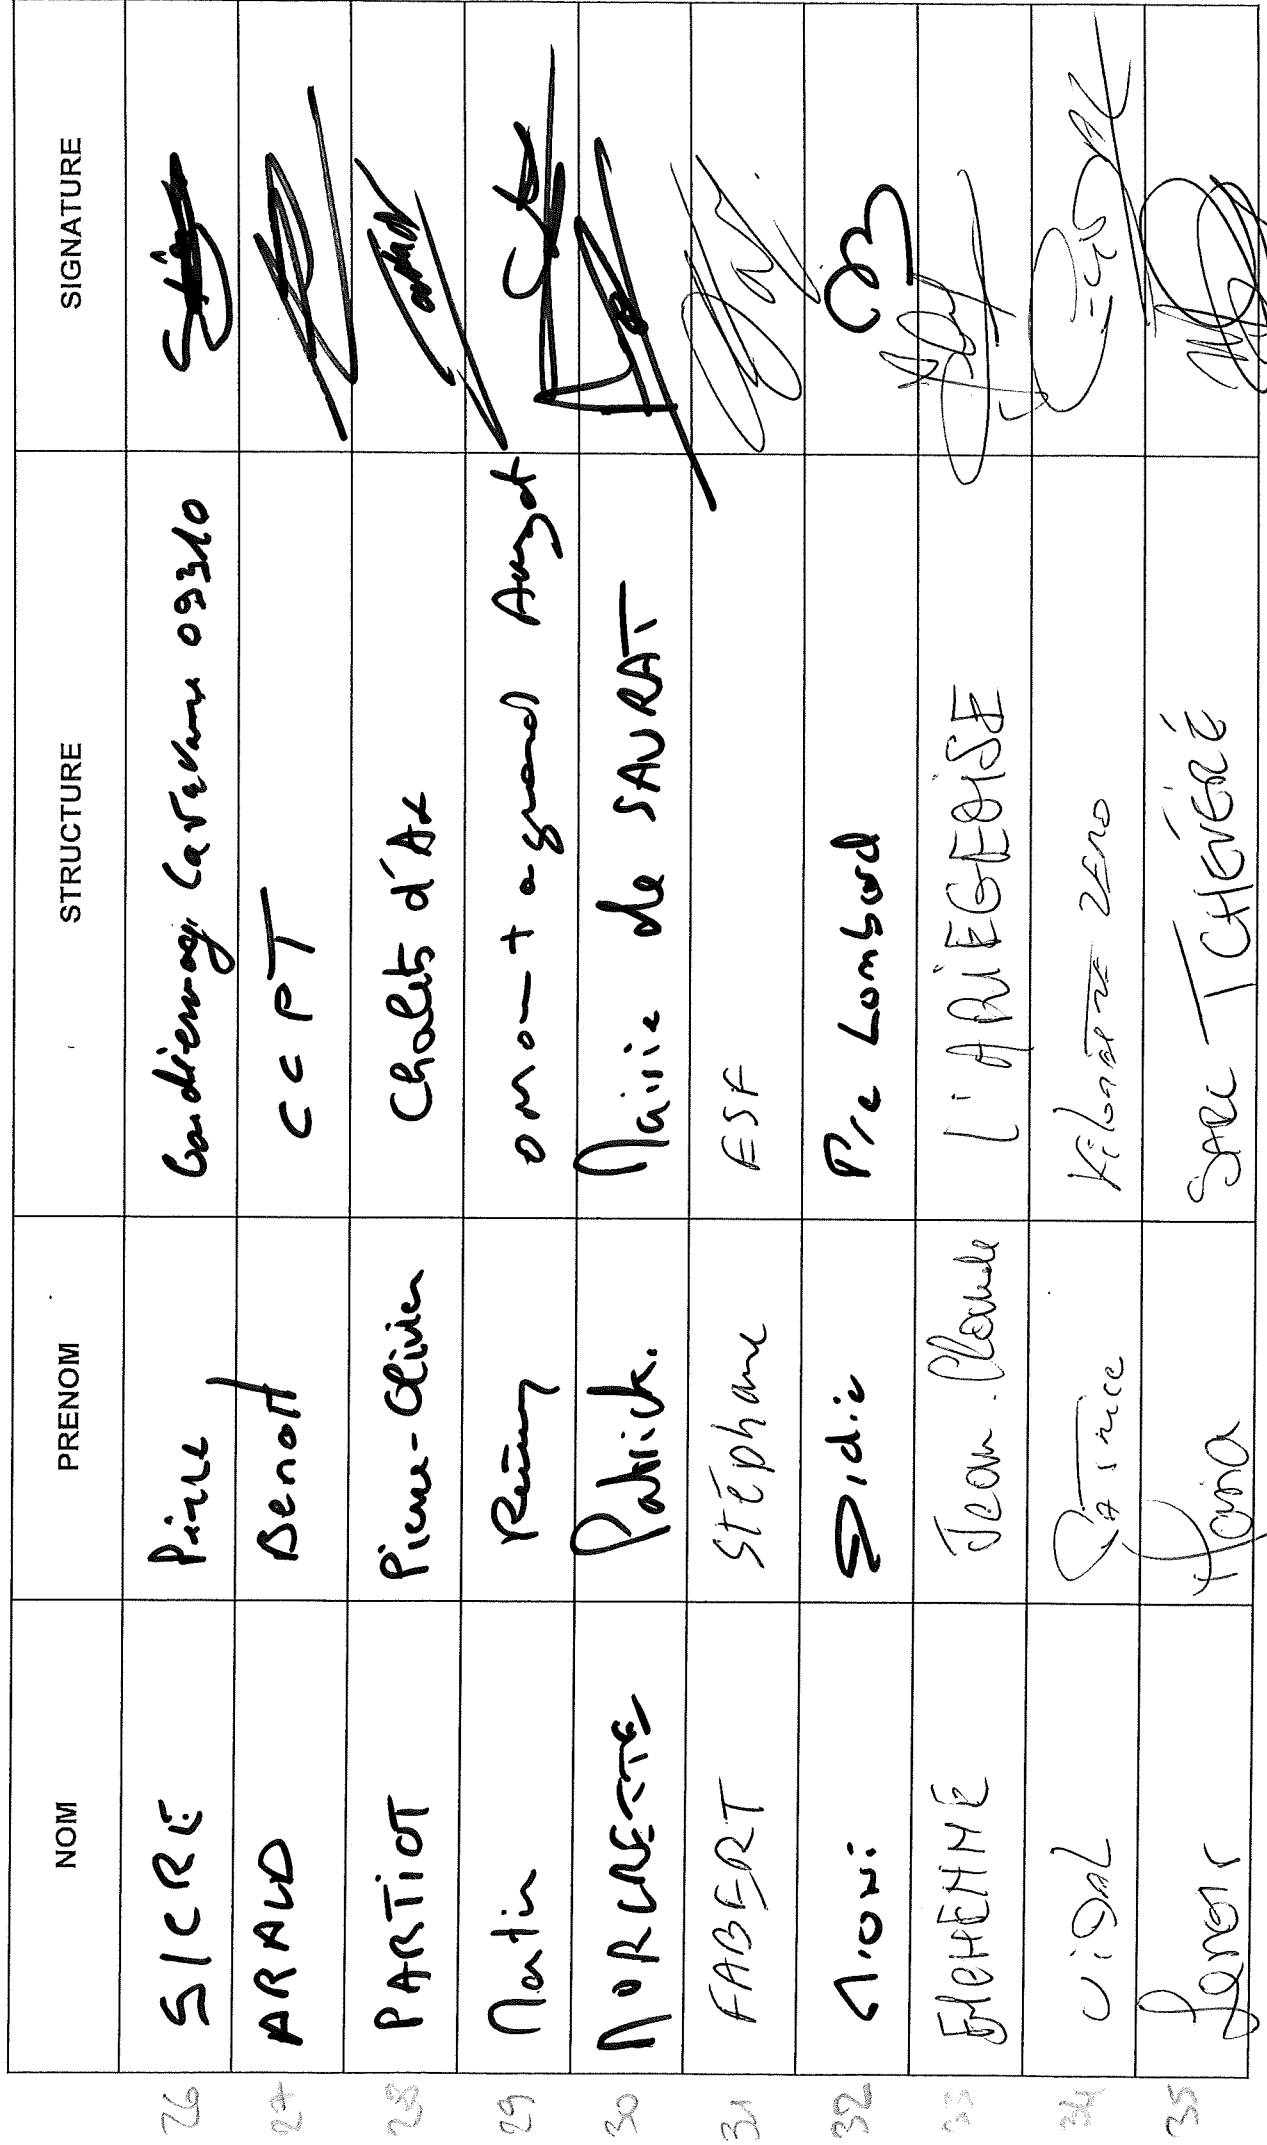 NOM PRENOM STRUCTURE SIGNATURE
26 SICRE Pierre Gardiennage Caravane 09310
27 ARAUD Benoit CCPT
28 PARTIOT Pierre-Olivier Chalets d'Ax
29 Martin Rémy
30 MORCRETTE Patrick. Mairie de SAURAT
31 FABERT Stéphane ESF
32 Didie Pre Lombard
33 Jean-Claude L'ARIÉGEOISE
34 ViDAL PATrice Kilomètre ZERO
35 Lenoir SARL TCHÉVÉRÉ